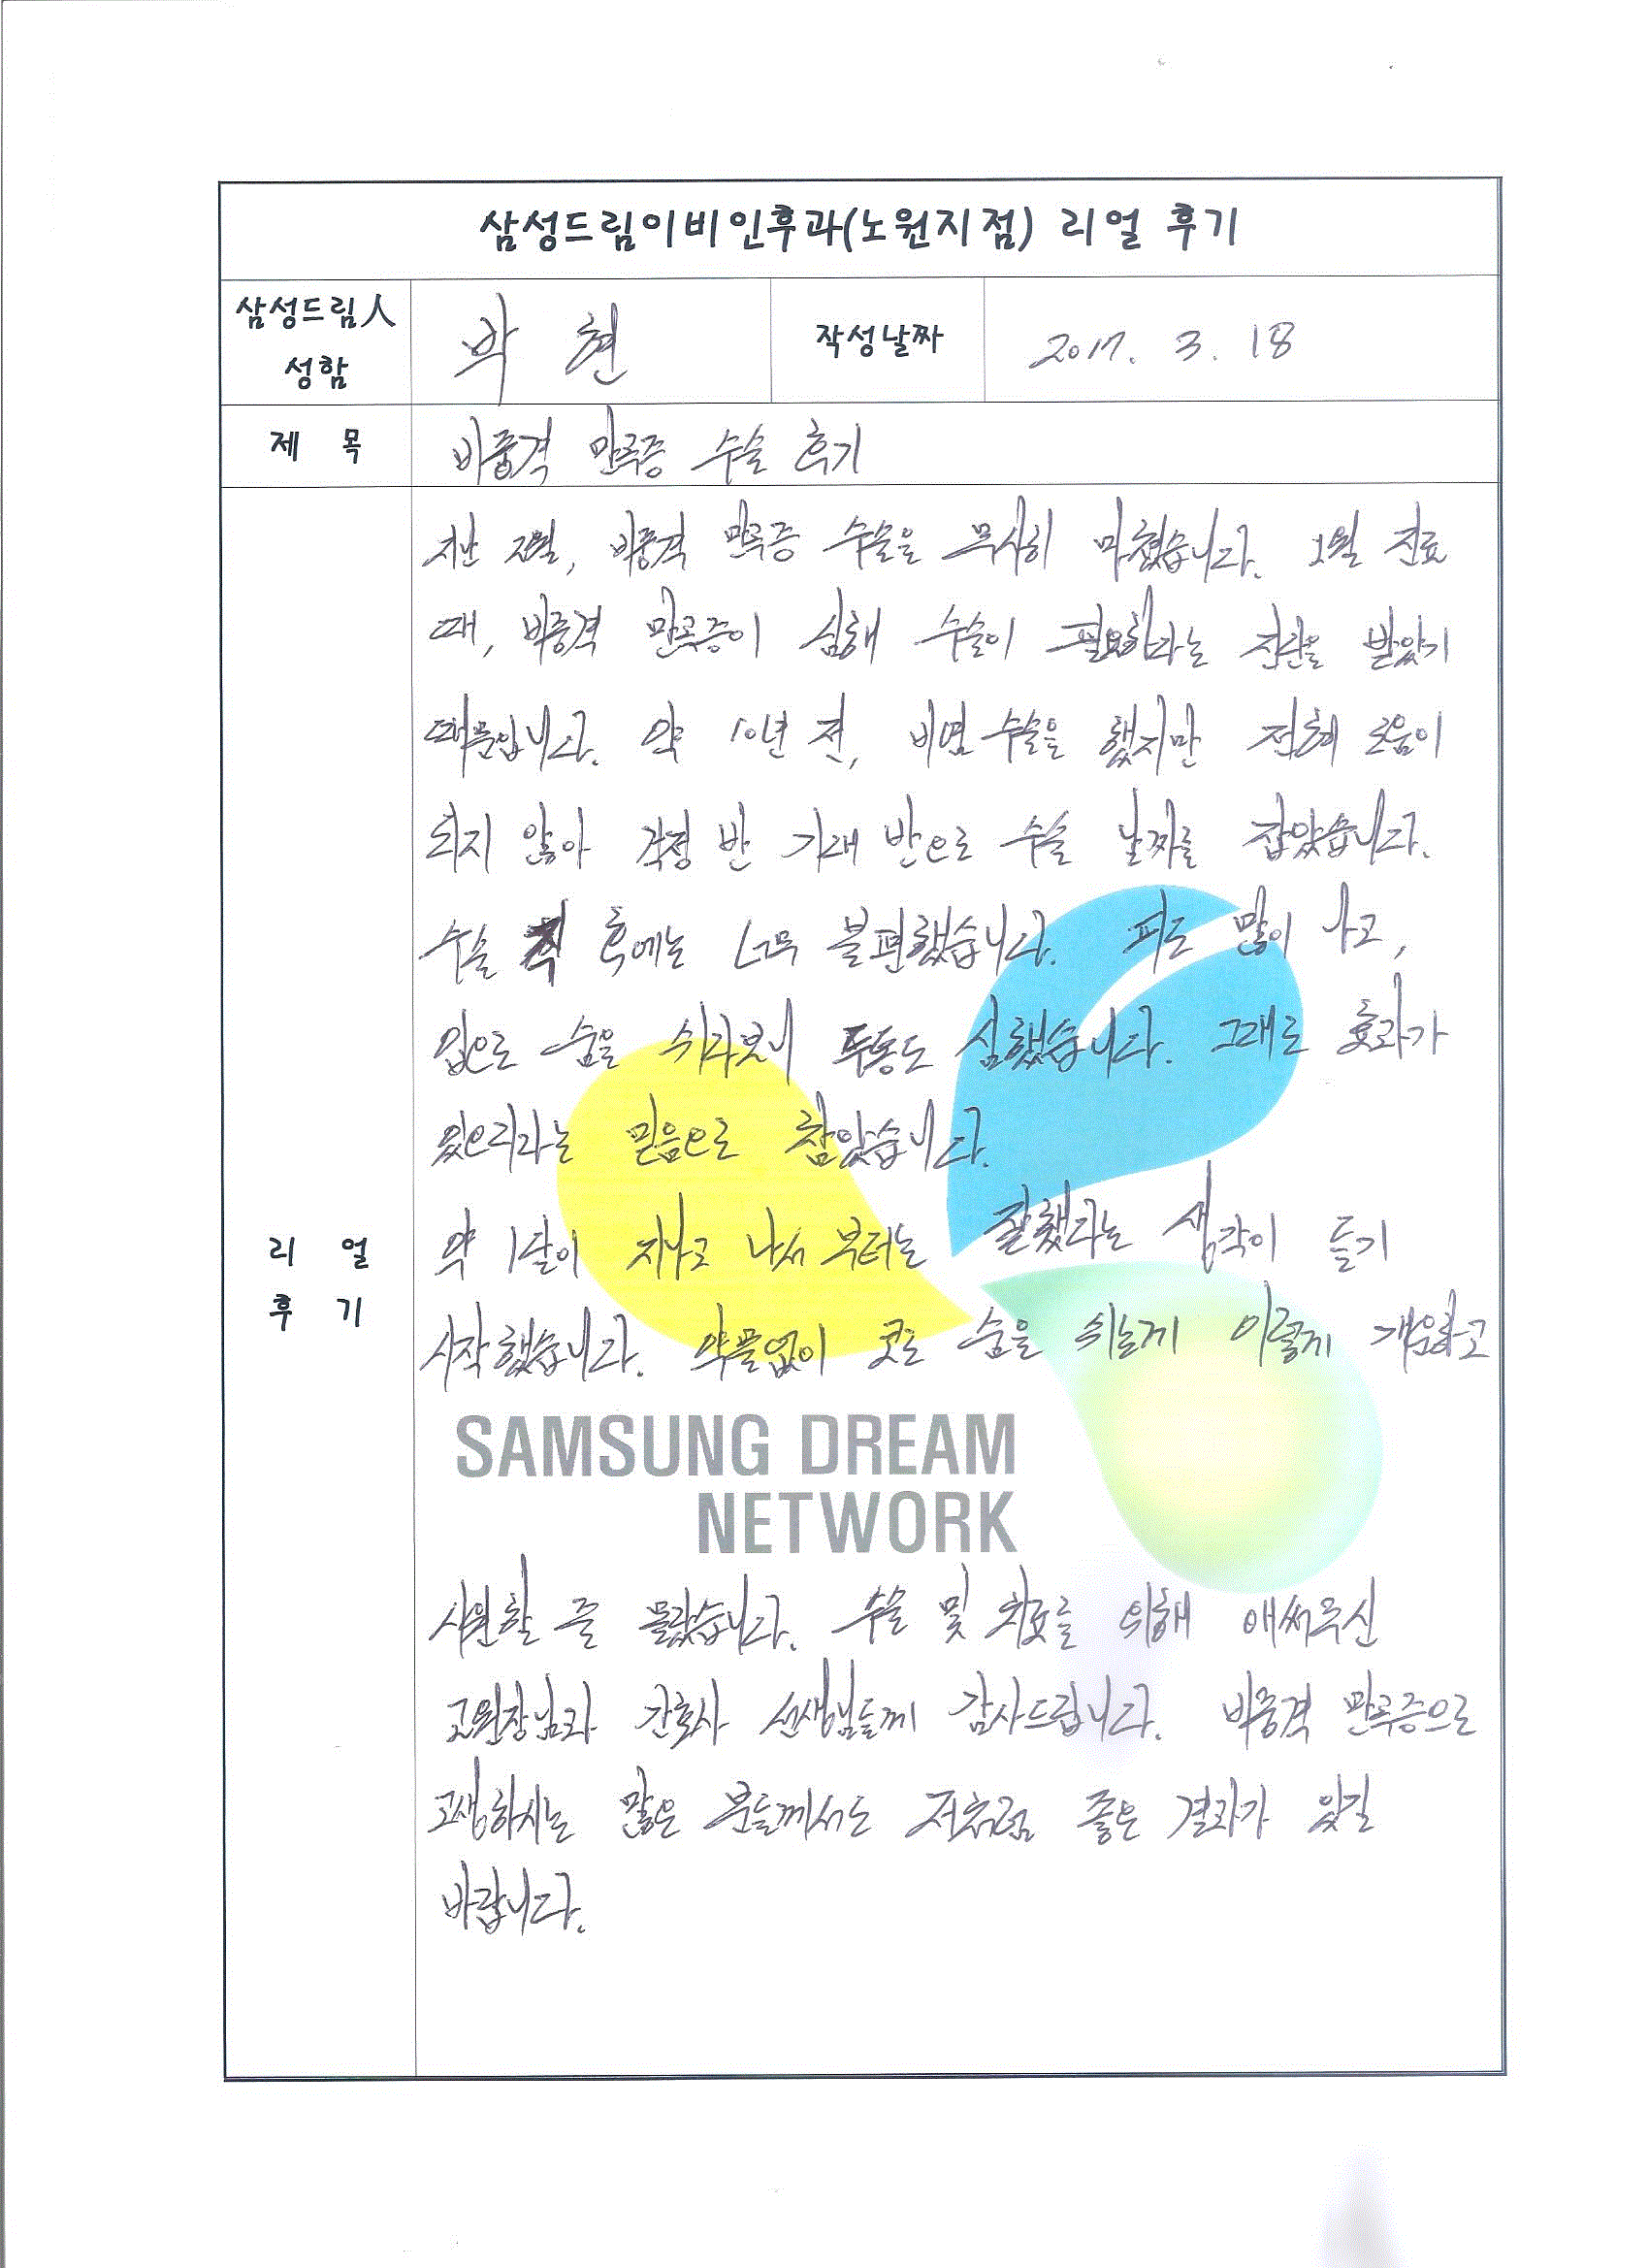 삼성드림이비인후과(노원지점) 리얼 후기
삼성드림人 성함
박 현
작성날짜
2017. 3. 18
제 목
비중격 만곡증 수술 후기
리 얼 후 기
지난 2월, 비중격 만곡증 수술을 무사히 마쳤습니다. 1월 진료
때, 비중격 만곡증이 심해 수술이 필요하다는 진단을 받았기
때문입니다. 약 10년 전, 비염 수술을 했지만 전혀 도움이
되지 않아 걱정 반 기대 반으로 수술 날짜를 잡았습니다.
수술 직후에는 너무 불편했습니다. 피도 많이 나고,
입으로 숨을 쉬다보니 두통도 심했습니다. 그래도 효과가
있으리라는 믿음으로 참았습니다.
약 1달이 지나고 나서 부터는 잘했다는 생각이 들기
시작했습니다. 약품없이 코로 숨을 쉬는게 이렇게 개운하고
SAMSUNG DREAM
NETWORK
시원할 줄 몰랐습니다. 수술 및 치료를 위해 애써주신
고원장님과 간호사 선생님들께 감사드립니다. 비중격 만곡증으로
고생하시는 많은 분들께서도 저처럼 좋은 결과가 있길
바랍니다.